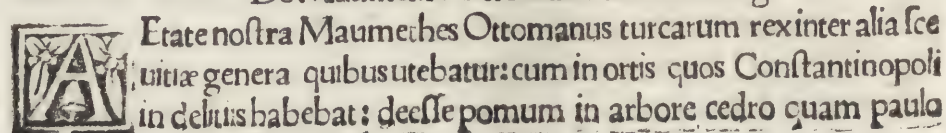 AEtate noſtra Maumethes Ottomanus turcarum rex inter alia ſce
uitiæ genera quibus utebatur: cum in ortis quos Conſtantinopoli
in delitiis habebat: deeſſe pomum in arbore cedro quam paulo